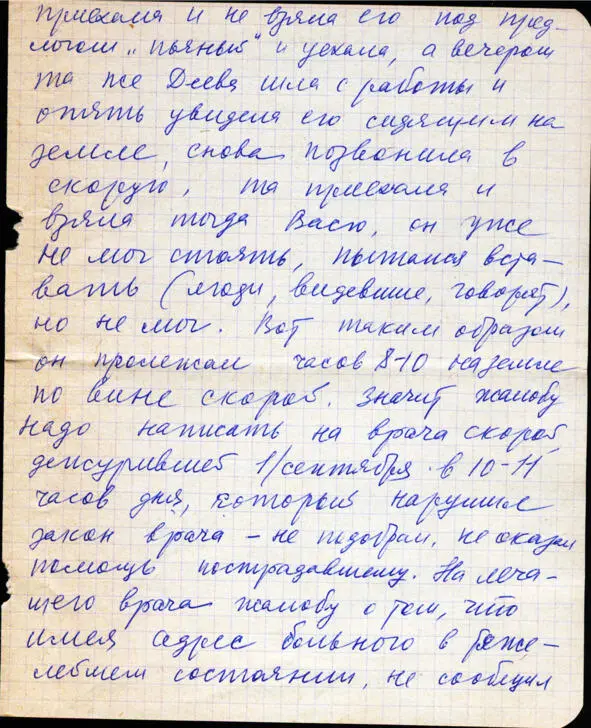 приехала и не взяла его под пред-
логом „пьяный" и уехала, а вечером
та же Деева шла с работы и
опять увидела его сидящим на
земле, снова позвонила в
скорую, та приехала и
взяла тогда Васю, он уже
не мог стоять, пытался вста-
вать (люди, видевшие, говорят),
но не мог. Вот таким образом
он пролежал часов 8-10 на земле
по вине скорой. Значит жалобу
надо написать на врача скорой,
дежурившей 1/сентября в 10-11
часов дня, который нарушил
закон врача – не подобрал, не оказал
помощь пострадавшему. На леча-
щего врача жалобу о том, что
имея адрес больного в тяже-
лейшем состоянии, не сообщил